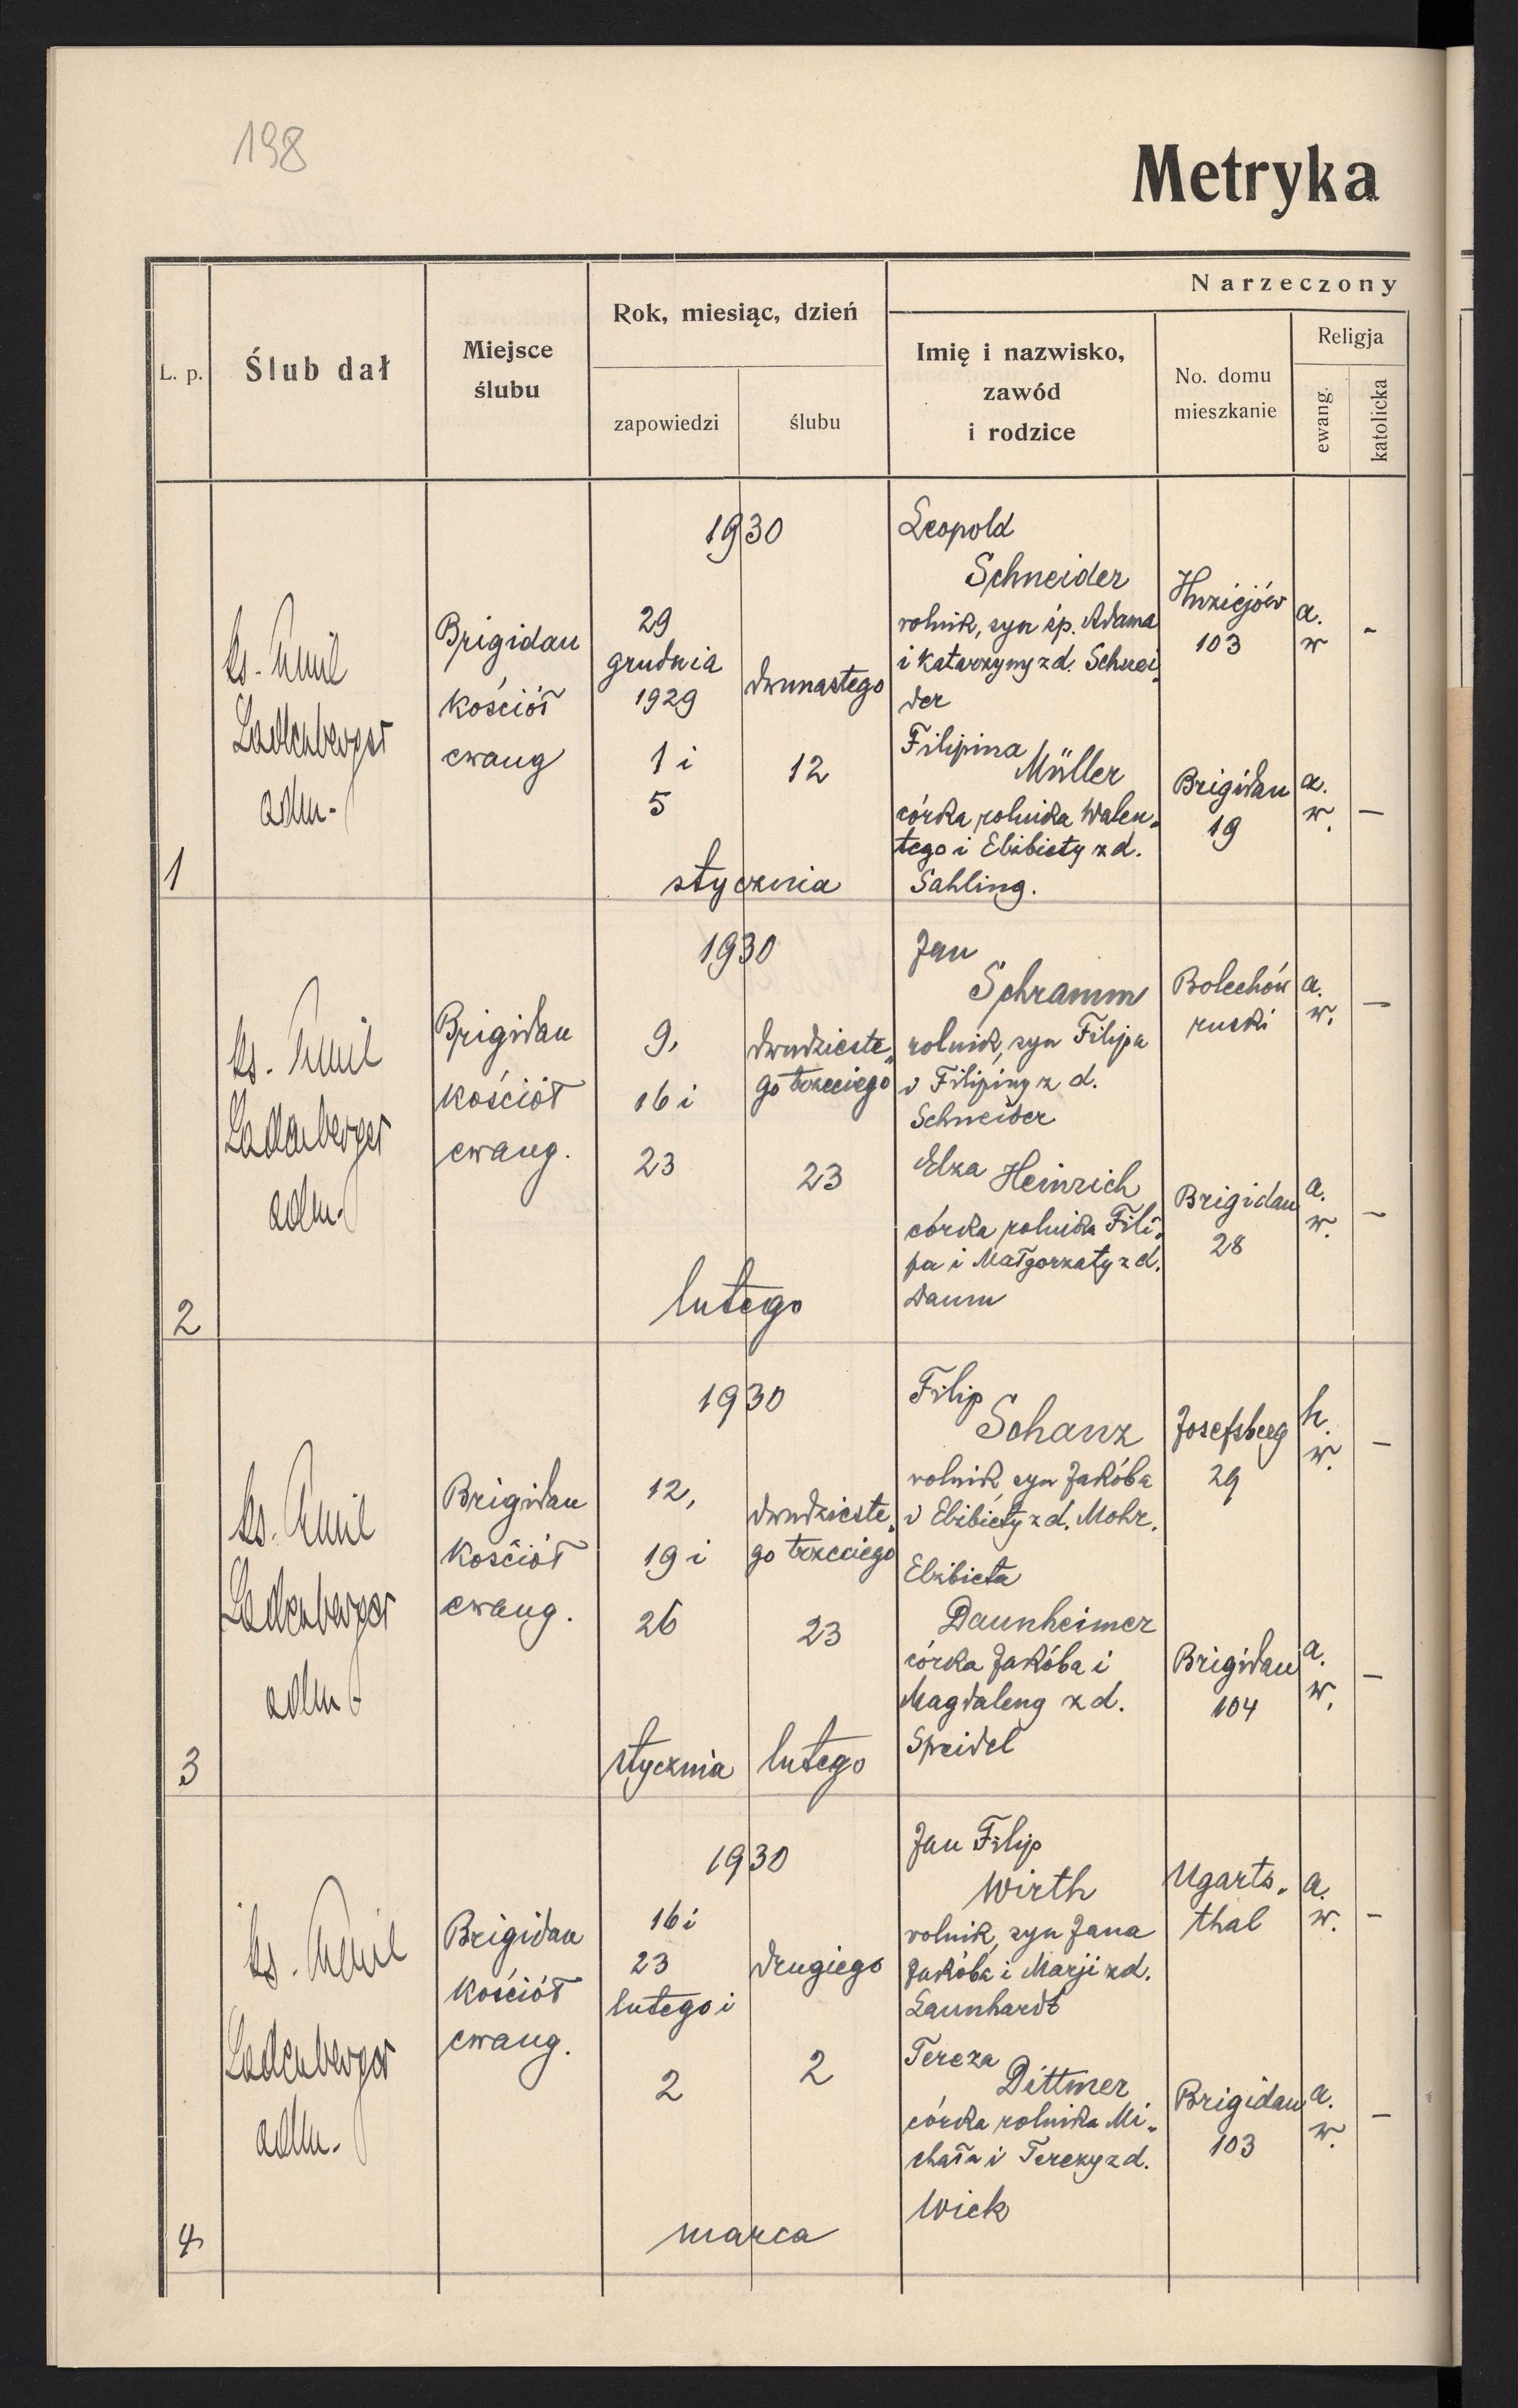 198
Metryka
L. p.
Ślub dał
Miejsce
ślubu
Rok, miesiąc, dzień
zapowiedzi
ślubu
Narzeczony
Imię i nazwisko,
zawód
i rodzice
No. domu
mieszkanie
Religja
ewang.
katolicka
1
ks. Emil
Ladenberger
adm.
Brigidau
kościół
ewang
1930
29
grudnia
1929
1 i
5
dwunastego
12
stycznia
Leopold
Schneider
rolnik, syn śp. Adama
i Katarzyny z d. Schnei-
der
Huziejów
103
a.
w
-
Filipina
Müller
córka rolnika Walen-
tego i Elżbiety z d.
Sahling.
Brigidau
19
a.
w.
-
2
ks. Emil
Ladenberger
adm.
Brigidau
kościół
ewang.
1930
9,
16 i
23
dwudzieste-
go trzeciego
23
lutego
Jan
Schramm
rolnik, syn Filipa
i Filipiny z d.
Schneider
Bolechów
ruski
a.
w.
-
Elza Heinrich
córka rolnika Fili-
pa i Małgorzaty z d.
Daum
Brigidau
28
a.
w.
-
3
ks. Emil
Ladenberger
adm.
Brigidau
kościół
ewang.
1930
12,
19 i
26
stycznia
dwudzieste-
go trzeciego
23
lutego
Filip
Schanz
rolnik, syn Jakóba
i Elżbiety z d. Mohr.
Josefsberg
29
h.
w.
-
Elżbieta
Daunheimer
córka Jakóba i
Magdaleny z d.
Speidel
Brigidau
104
a.
w.
-
4
ks. Emil
Ladenberger
adm.
Brigidau
kościół
ewang.
1930
16 i
23
lutego i
2
drugiego
2
marca
Jan Filip
Wirth
rolnik, syn Jana
Jakóba i Marji z d.
Launhardt
Ugarts-
thal
a.
w.
-
Tereza
Dittmer
córka rolnika Mi-
chała i Terezy z d.
Wick
Brigidau
103
a.
w.
-